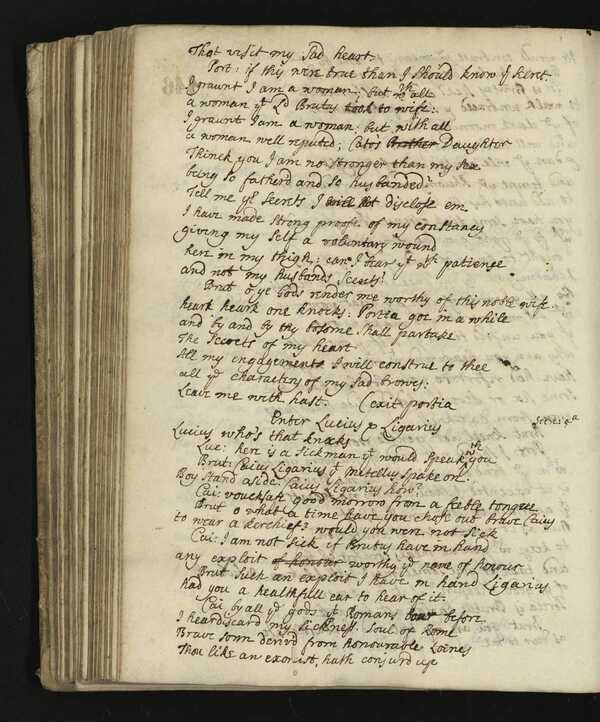 That visit my sad heart.
Port: if this were true than I should know yr secret
I graunt I am a woman; but wth all
a woman yt Ld Brutus took to wife:
I graunt I am a woman: but with all
a woman well reputed; Cato's Brother Daughter
Thinck you I am no stronger than my sex
being so fatherd and so husbanded?
Tell me yr secrets I will not disclose em
I have made strong proofe of my constancy
giving my self a voluntary wound
here in my thigh; can I bear yt wth patience
and not my husbands secrets?
Brut o ye Gods render me worthy of this noble wife.
heark heark one knocks: Portia goe in a while
and by and by thy bosome shall partake
The Secrets of my heart
All my engagements I will construe to thee
all ye characters of my sad browes:
Leave me with hast. (exit portia
Enter Lucius & Ligarius
Lucius who's that knocks
Luc: here is a sickman yt would speak wth you
Brut: Caius Ligarius yt Metellus spake on.
Boy stand aside. Caius Ligarius how?
Cai: vouchsafe good morrow from a feeble tongue
Brut o what a time have you chose out brave Caius
to wear a kerchief? would you were not sick
Cai: I am not sick if Brutus have in hand
any exploit of honour worthy ye name of honour
Brut such an exploit I have in hand Ligarius
had you a healthfull ear to hear of it.
Cai by all ye gods yt Romans bow before
I heardiscard my sickness. Soul of Rome
Brave sonn derivd from honourable Loines
Thou like an exorcist, hath conjurd up